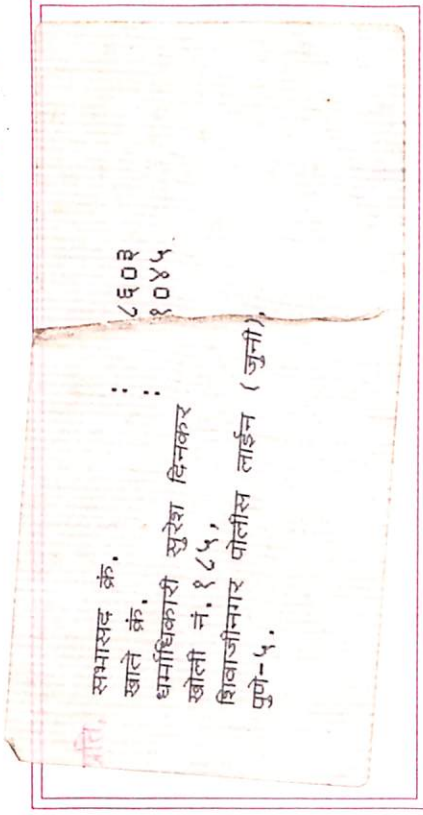 प्रति,
सभासद क्रं. : ८६०३
खाते क्रं. : १०४५
धर्माधिकारी सुरेश दिनकर
खोली नं. १८५,
शिवाजीनगर पोलीस लाईन ( जुनी),
पुणे-५.